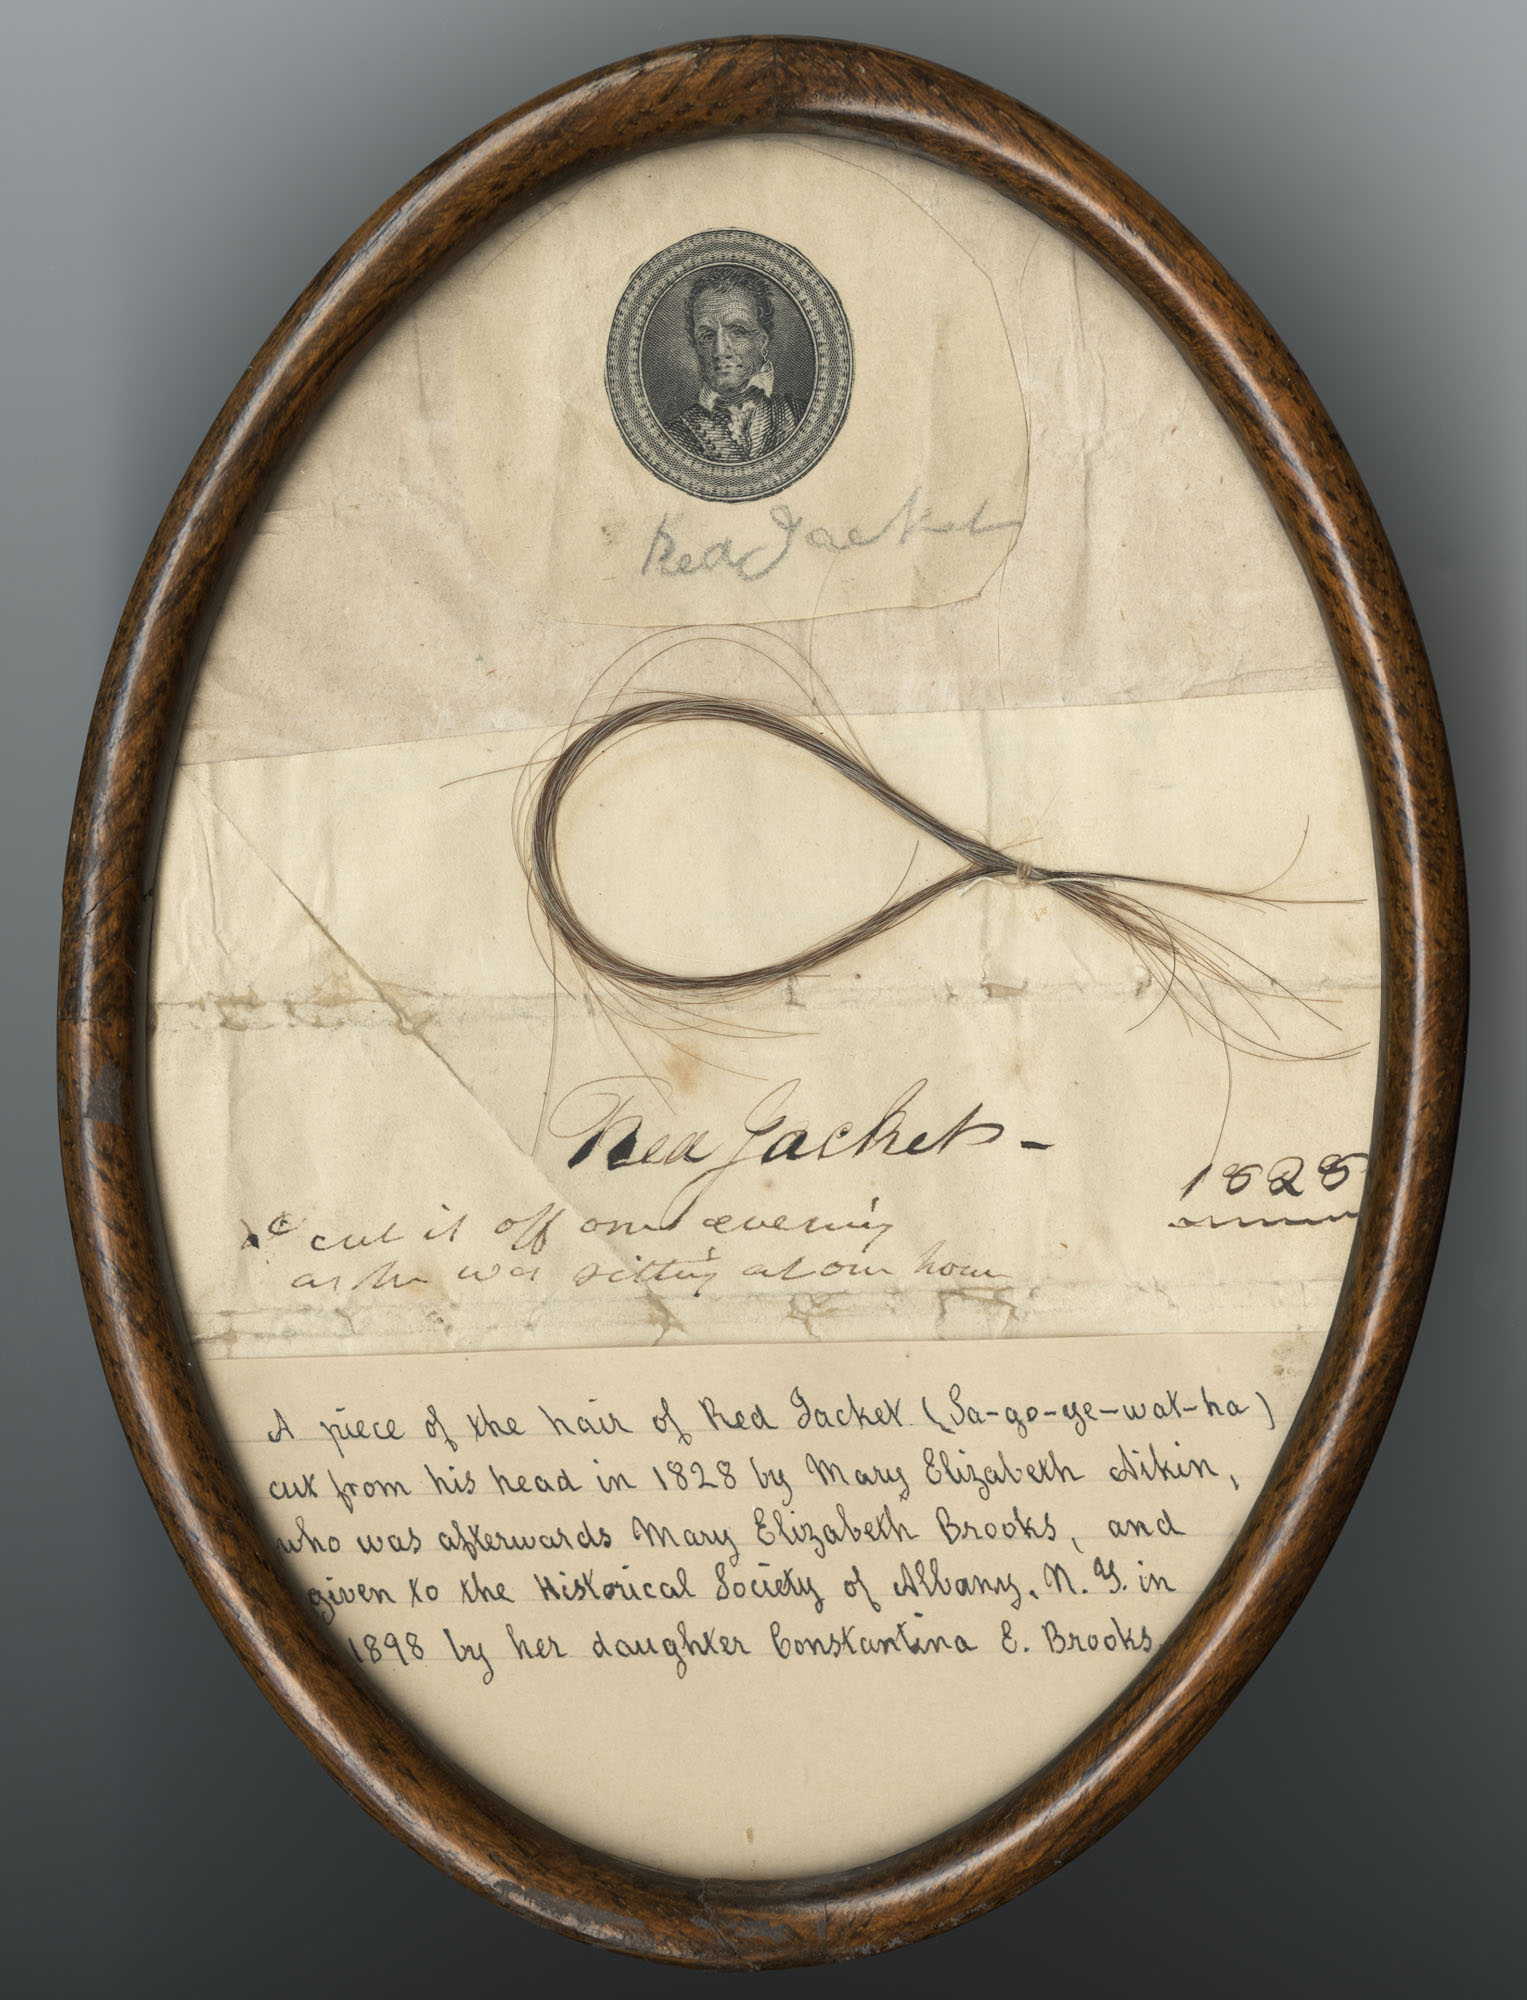 Red Jacket
Red Jacket -
1828
cut it off one evening
as he was sitting at our house
A piece of the hair of Red Jacket (Sa-go-ye-wat-ha)
cut from his head in 1828 by Mary Elizabeth Aikin,
who was afterwards Mary Elizabeth Brooks, and
given to the Historical Society of Albany, N. Y. in
1898 by her daughter Constantina E. Brooks.